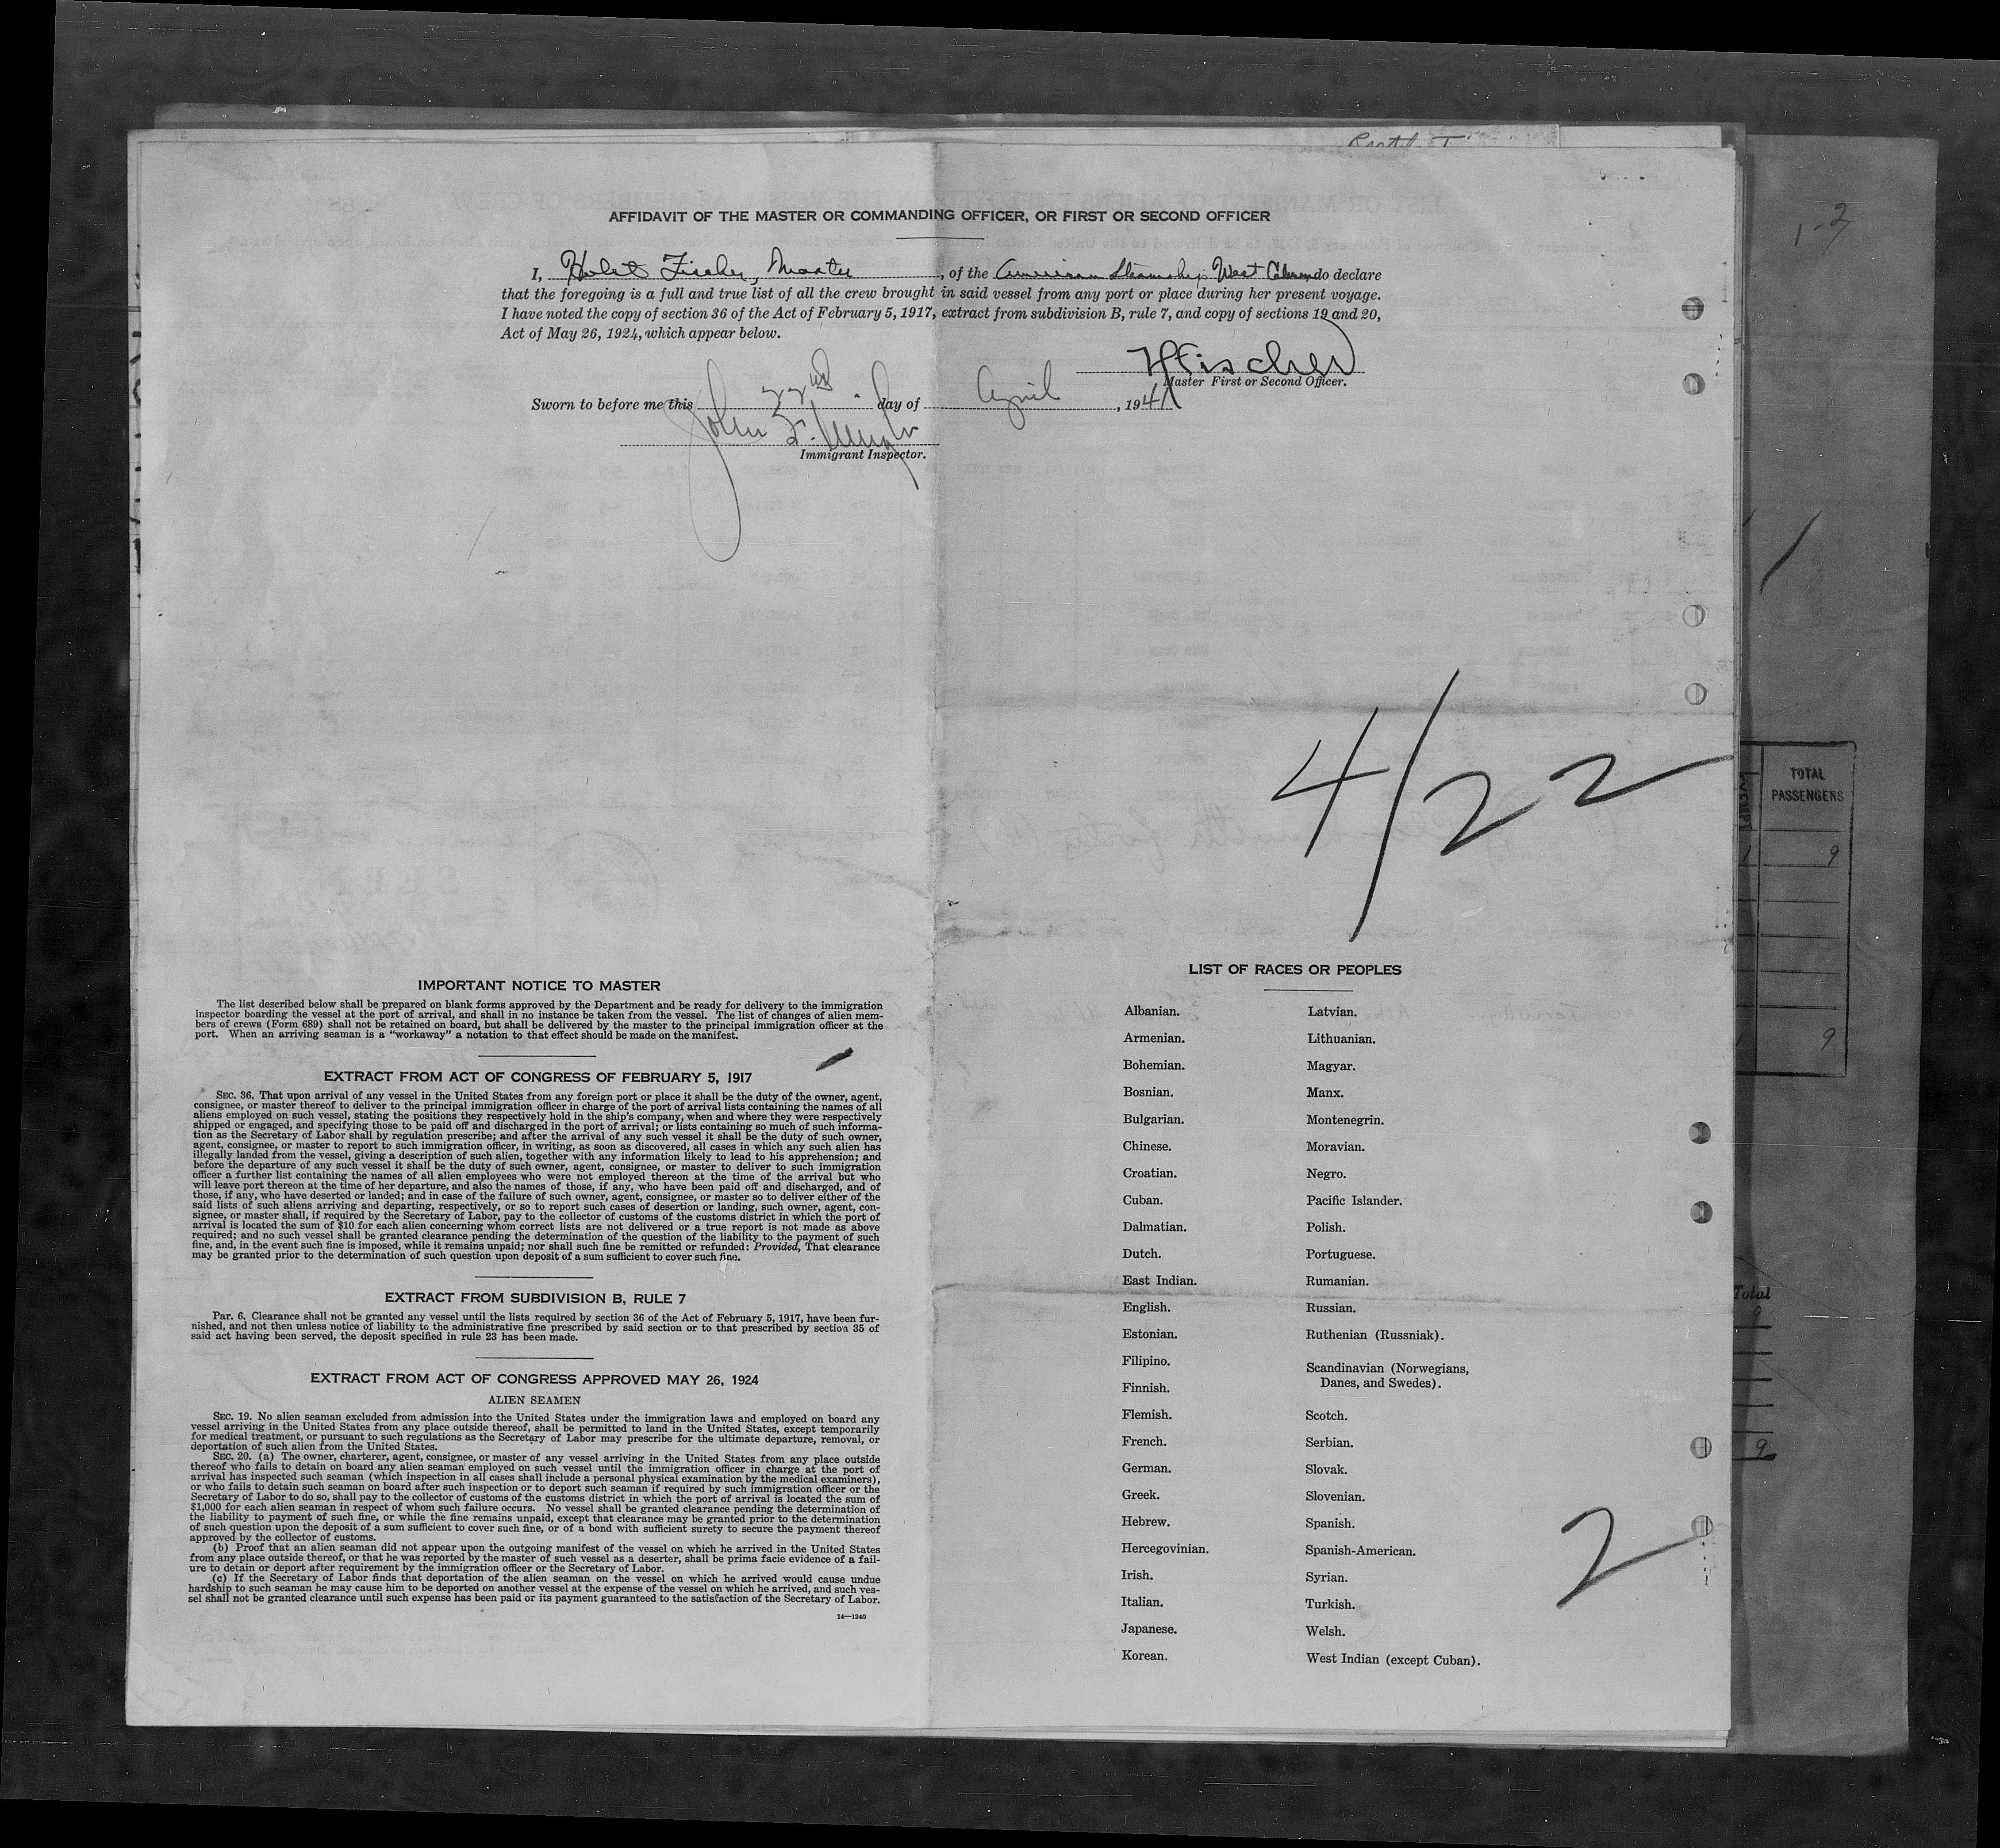 AFFIDAVIT OF THE MASTER OR COMMANDING OFFICER, OR FIRST OR SECOND OFFICER
I, Fischer, Master, of the American Steamship West do declare
that the foregoing is a full and true list of all the crew brought in said vessel from any port or place during her present voyage.
I have noted the copy of section 36 of the Act of February 5, 1917, extract from subdivision B, rule 7, and copy of sections 19 and 20,
Act of May 26, 1924, which appear below.
HFischer
Master First or Second Officer.
Sworn to before me this 22nd day of April, 1941
John F.
Immigrant Inspector.
1-2
4/22
TOTAL
PASSENGERS
9
9
IMPORTANT NOTICE TO MASTER
The list described below shall be prepared on blank forms approved by the Department and be ready for delivery to the immigration
inspector boarding the vessel at the port of arrival, and shall in no instance be taken from the vessel. The list of changes of alien mem-
bers of crews (Form 689) shall not be retained on board, but shall be delivered by the master to the principal immigration officer at the
port. When an arriving seaman is a "workaway" a notation to that effect should be made on the manifest.
EXTRACT FROM ACT OF CONGRESS OF FEBRUARY 5, 1917
SEC. 36. That upon arrival of any vessel in the United States from any foreign port or place it shall be the duty of the owner, agent,
consignee, or master thereof to deliver to the principal immigration officer in charge of the port of arrival lists containing the names of all
aliens employed on such vessel, stating the positions they respectively hold in the ship's company, when and where they were respectively
shipped or engaged, and specifying those to be paid off and discharged in the port of arrival; or lists containing so much of such informa-
tion as the Secretary of Labor shall by regulation prescribe; and after the arrival of any such vessel it shall be the duty of such owner,
agent, consignee, or master to report to such immigration officer, in writing, as soon as discovered, all cases in which any such alien has
illegally landed from the vessel, giving a description of such alien, together with any information likely to lead to his apprehension; and
before the departure of any such vessel it shall be the duty of such owner, agent, consignee, or master to deliver to such immigration
officer a further list containing the names of all alien employees who were not employed thereon at the time of the arrival but who
will leave port thereon at the time of her departure, and also the names of those, if any, who have been paid off and discharged, and of
those, if any, who have deserted or landed; and in case of the failure of such owner, agent, consignee, or master so to deliver either of the
said lists of such aliens arriving and departing, respectively, or so to report such cases of desertion or landing, such owner, agent, con-
signee, or master shall, if required by the Secretary of Labor, pay to the collector of customs of the customs district in which the port of
arrival is located the sum of $10 for each alien concerning whom correct lists are not delivered or a true report is not made as above
required; and no such vessel shall be granted clearance pending the determination of the question of the liability to the payment of such
fine, and, in the event such fine is imposed, while it remains unpaid; nor shall such fine be remitted or refunded: Provided, That clearance
may be granted prior to the determination of such question upon deposit of a sum sufficient to cover such fine.
EXTRACT FROM SUBDIVISION B, RULE 7
Par. 6. Clearance shall not be granted any vessel until the lists required by section 36 of the Act of February 5, 1917, have been fur-
nished, and not then unless notice of liability to the administrative fine prescribed by said section or to that prescribed by section 35 of
said act having been served, the deposit specified in rule 23 has been made.
EXTRACT FROM ACT OF CONGRESS APPROVED MAY 26, 1924
ALIEN SEAMEN
SEC. 19. No alien seaman excluded from admission into the United States under the immigration laws and employed on board any
vessel arriving in the United States from any place outside thereof, shall be permitted to land in the United States, except temporarily
for medical treatment, or pursuant to such regulations as the Secretary of Labor may prescribe for the ultimate departure, removal, or
deportation of such alien from the United States.
SEC. 20. (a) The owner, charterer, agent, consignee, or master of any vessel arriving in the United States from any place outside
thereof who fails to detain on board any alien seaman employed on such vessel until the immigration officer in charge at the port of
arrival has inspected such seaman (which inspection in all cases shall include a personal physical examination by the medical examiners),
or who fails to detain such seaman on board after such inspection or to deport such seaman if required by such immigration officer or the
Secretary of Labor to do so, shall pay to the collector of customs of the customs district in which the port of arrival is located the sum of
$1,000 for each alien seaman in respect of whom such failure occurs. No vessel shall be granted clearance pending the determination of
the liability to payment of such fine, or while the fine remains unpaid, except that clearance may be granted prior to the determination
of such question upon the deposit of a sum sufficient to cover such fine, or of a bond with sufficient surety to secure the payment thereof
approved by the collector of customs.
(b) Proof that an alien seaman did not appear upon the outgoing manifest of the vessel on which he arrived in the United States
from any place outside thereof, or that he was reported by the master of such vessel as a deserter, shall be prima facie evidence of a fail-
ure to detain or deport after requirement by the immigration officer or the Secretary of Labor.
(c) If the Secretary of Labor finds that deportation of the alien seaman on the vessel on which he arrived would cause undue
hardship to such seaman he may cause him to be deported on another vessel at the expense of the vessel on which he arrived, and such ves-
sel shall not be granted clearance until such expense has been paid or its payment guaranteed to the satisfaction of the Secretary of Labor.
14—1240
LIST OF RACES OR PEOPLES
Albanian.
Armenian.
Bohemian.
Bosnian.
Bulgarian.
Chinese.
Croatian.
Cuban.
Dalmatian.
Dutch.
East Indian.
English.
Estonian.
Filipino.
Finnish.
Flemish.
French.
German.
Greek.
Hebrew.
Hercegovinian.
Irish.
Italian.
Japanese.
Korean.
Latvian.
Lithuanian.
Magyar.
Manx.
Montenegrin.
Moravian.
Negro.
Pacific Islander.
Polish.
Portuguese.
Rumanian.
Russian.
Ruthenian (Russniak).
Scandinavian (Norwegians,
Danes, and Swedes).
Scotch.
Serbian.
Slovak.
Slovenian.
Spanish.
Spanish-American.
Syrian.
Turkish.
Welsh.
West Indian (except Cuban).
2
Total
9
9